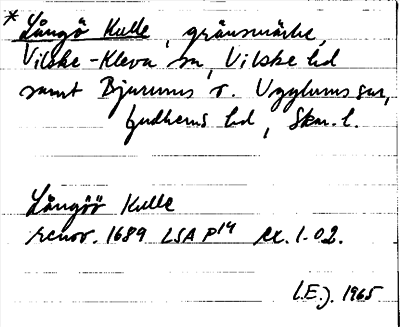 * Långö Kulle, gränsmärke,
Vilske-Kleva sn, Vilske hd
samt Bjurums o. Ugglums snr,
Gudhems hd, Skar. l.
Långöö Kulle
renov. 1689 LSA P14 ex. 1-02.
I.E.J. 1965